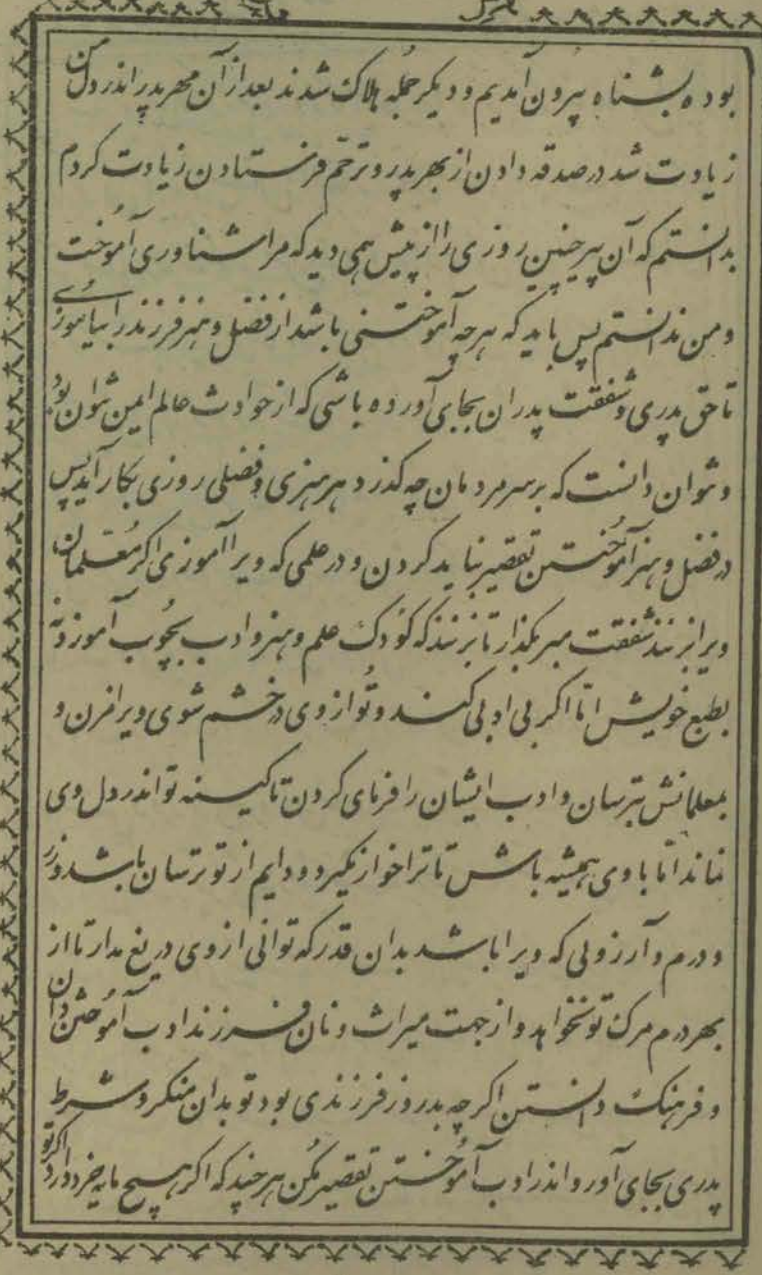 بوده بشناه بیرون آمدیم و دیگر جمله هلاک شدند بعد از آن مهر پدر اندر دل من
زیادت شد در صدقه دادن از بهر پدر و ترحّم فرستادن زیادت کردم
بدانستم که آن پیر چنین روزی را از پیش همی دید که مرا شناوری آموخت
و من ندانستم پس باید که هرچه آموختنی باشد از فضل و هنر فرزند را بیاموزی
تا حق پدری و شفقت پدران بجای آورده باشی که از حوادث عالم ایمن نتوان بود
و نتوان دانست که بر سر مردمان چه گذرد هر هنری و فضلی روزی بکار آید پس
در فضل و هنر آموختن تقصیر نباید کردن و در علمی که ویرا آموزی اگر معلمان
ویرا بزنند شفقت مبر بگذار تا بزنند که کودک علم و هنر و ادب بچوب آموزد نه
بطبع خویش امّا اگر بی ادبی کند و تو از وی در خشم شوی ویرا مزن و
بمعلمانش بترسان و ادب ایشان را فرمای کردن تا کینه تو اندر دل وی
نماند امّا با وی همیشه باش تا ترا خوار نگیرد و دایم از تو ترسان باشد و زر
و درم و آرزویی که ویرا باشد بدان قدر که توانی از وی دریغ مدار تا از
بهر درم مرک تو نخواهد و از جهت میراث و نان فرزند ادب آموختن دان
و فرهنک دانستن اکر چه بد روز فرزندی بود تو بدان منکر و شرط
پدری بجای آور و اندر ادب آموختن تقصیر مکن هر چند که اکر هیچ مایه خرد ندارد اکر تو